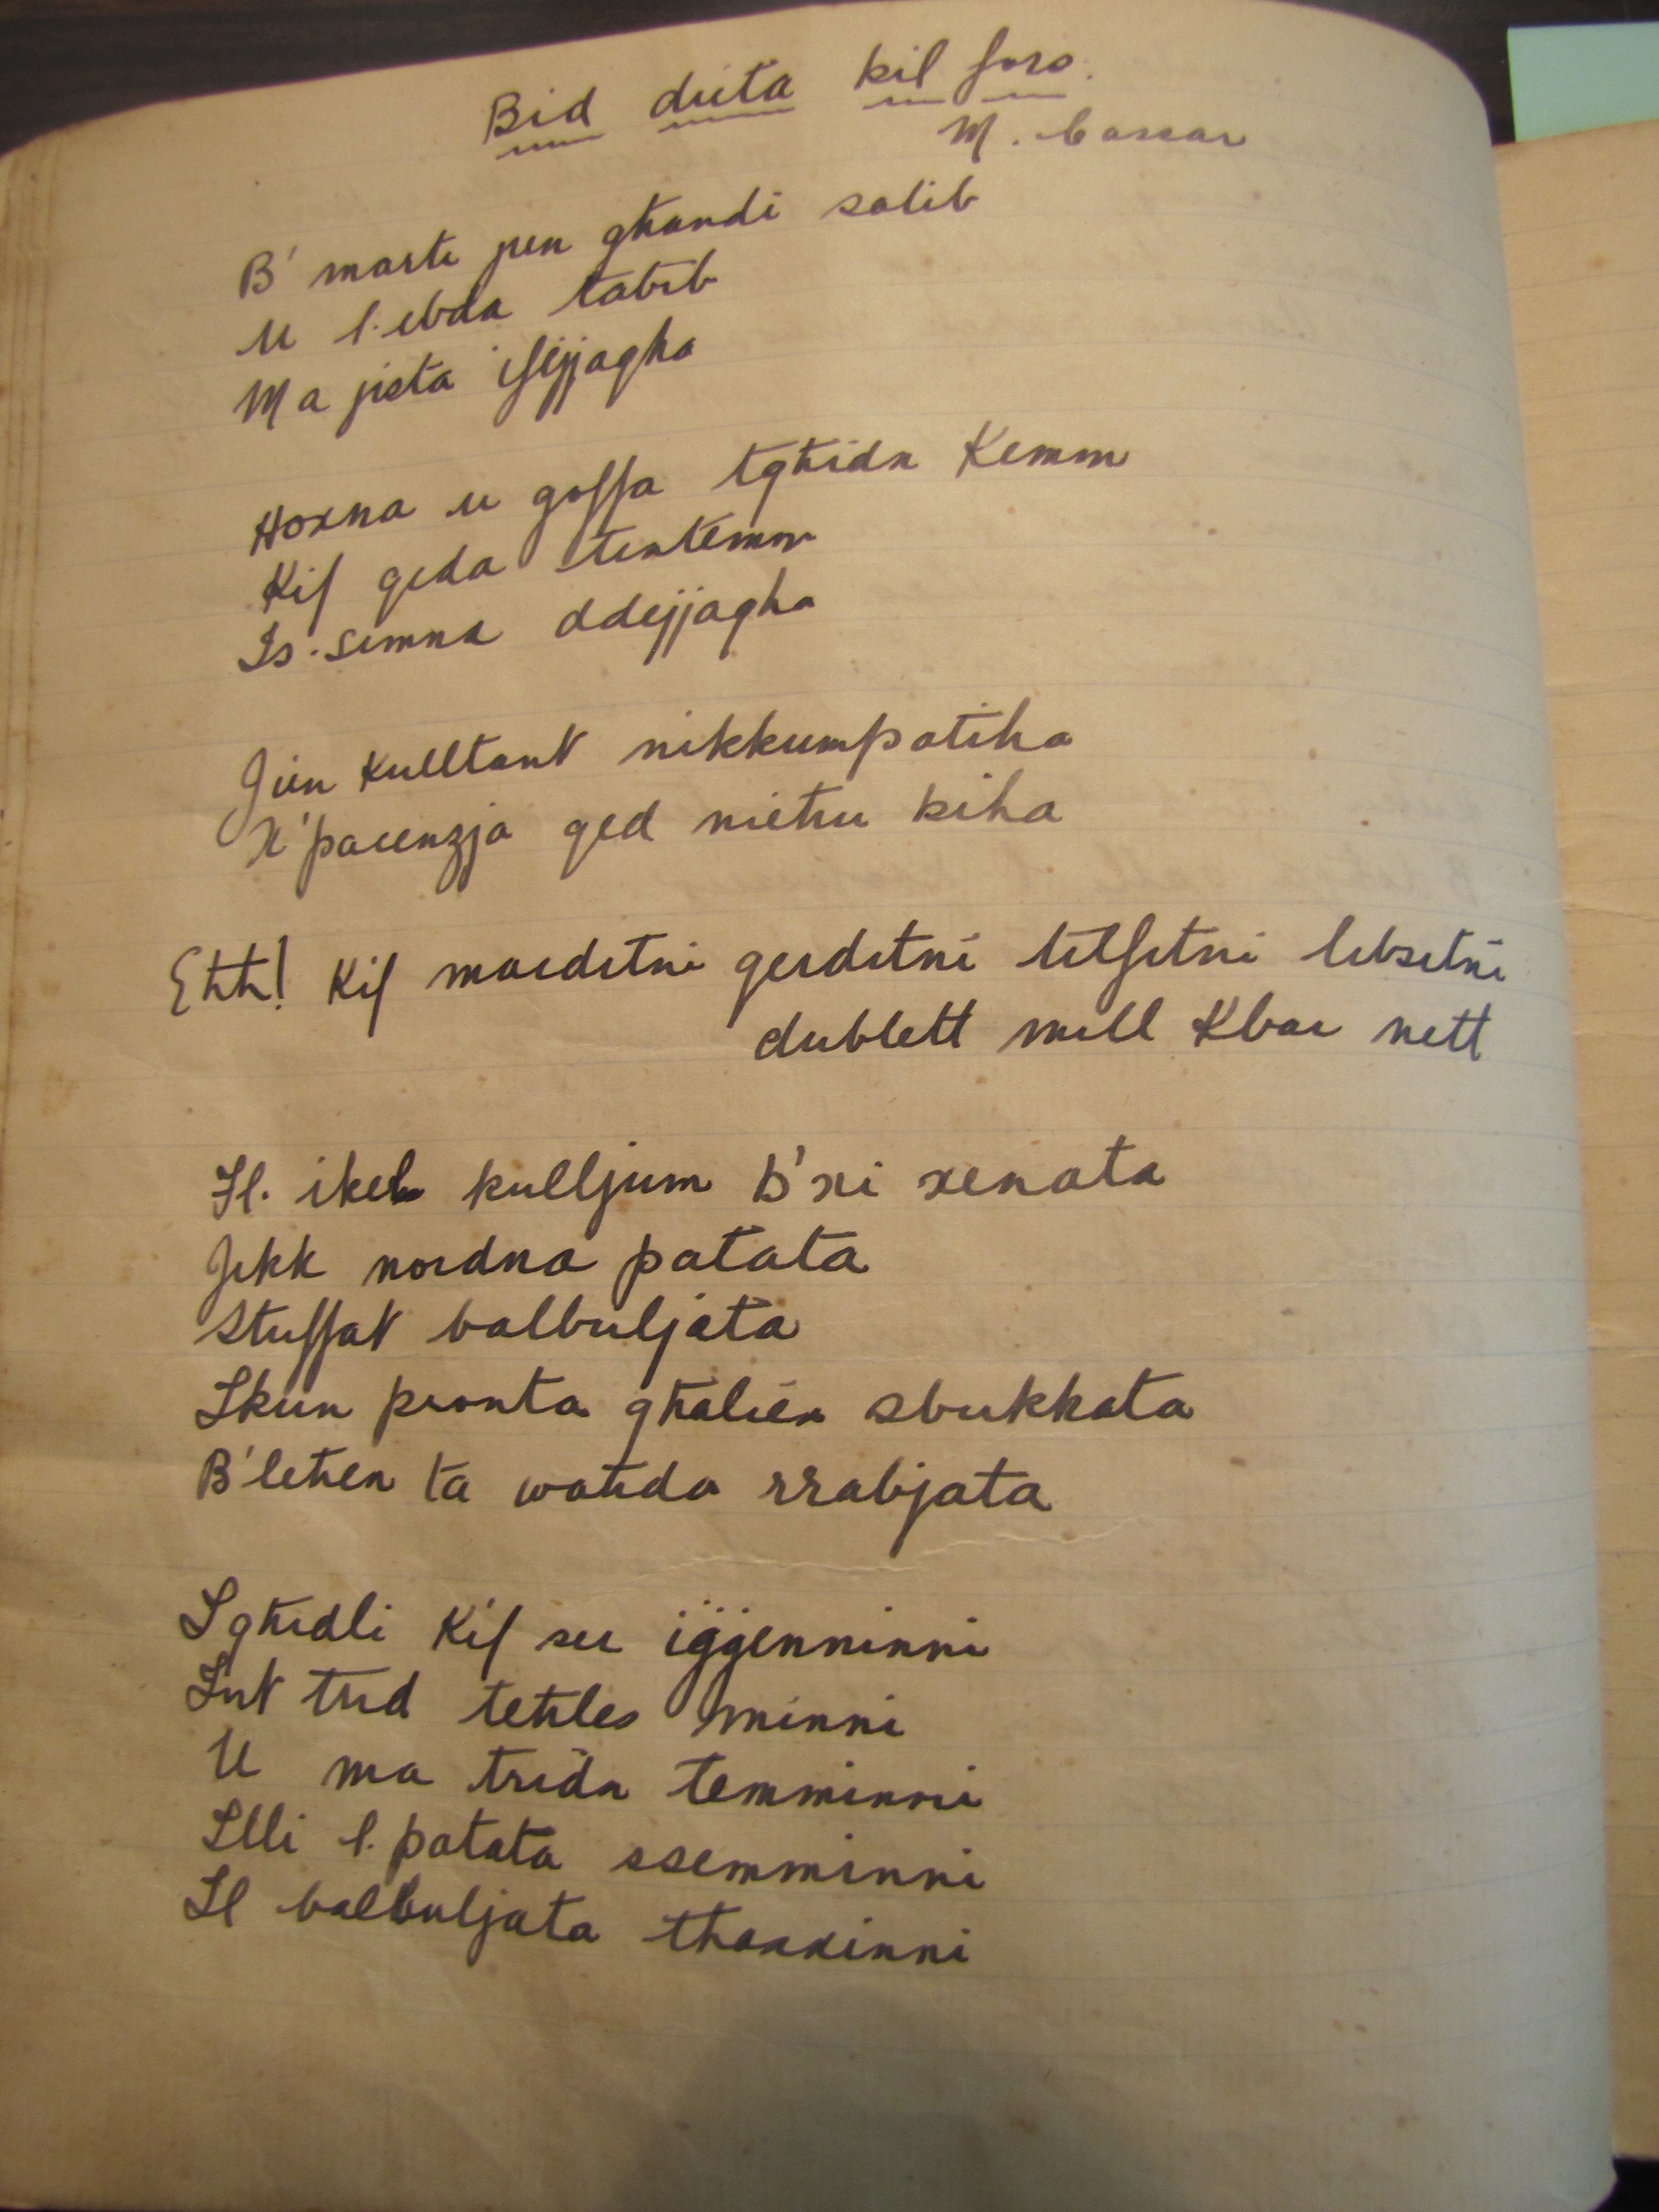 Bid dieta kil fors.
M. Cassar
B' marti jien għandi salib
U l. ebda tabib
Ma jista ifejjaqha
Ħoxna u goffa tgħidx Kemm
Kif qeda tintemm
Is. simna ddejjaqha
Jien Kulltant nikkumpatiha
X'pacenzja qed nieħu biha
Eħħ! Kif marditni qerditni tilfitni libsitni
dublett mill Kbar nett
Il. ikel kulljum b'xi xenata
Jekk nordna patata
Stuffat balbuljata
Ikun pronta għalien sbukkata
B'leħen ta waħda rrabjata
Igħidli Kif se iġġenninni
Int trid teħles minni
U ma tridx temminni
Illi l. patata ssemminni
Il balbuljata tħaxxinni